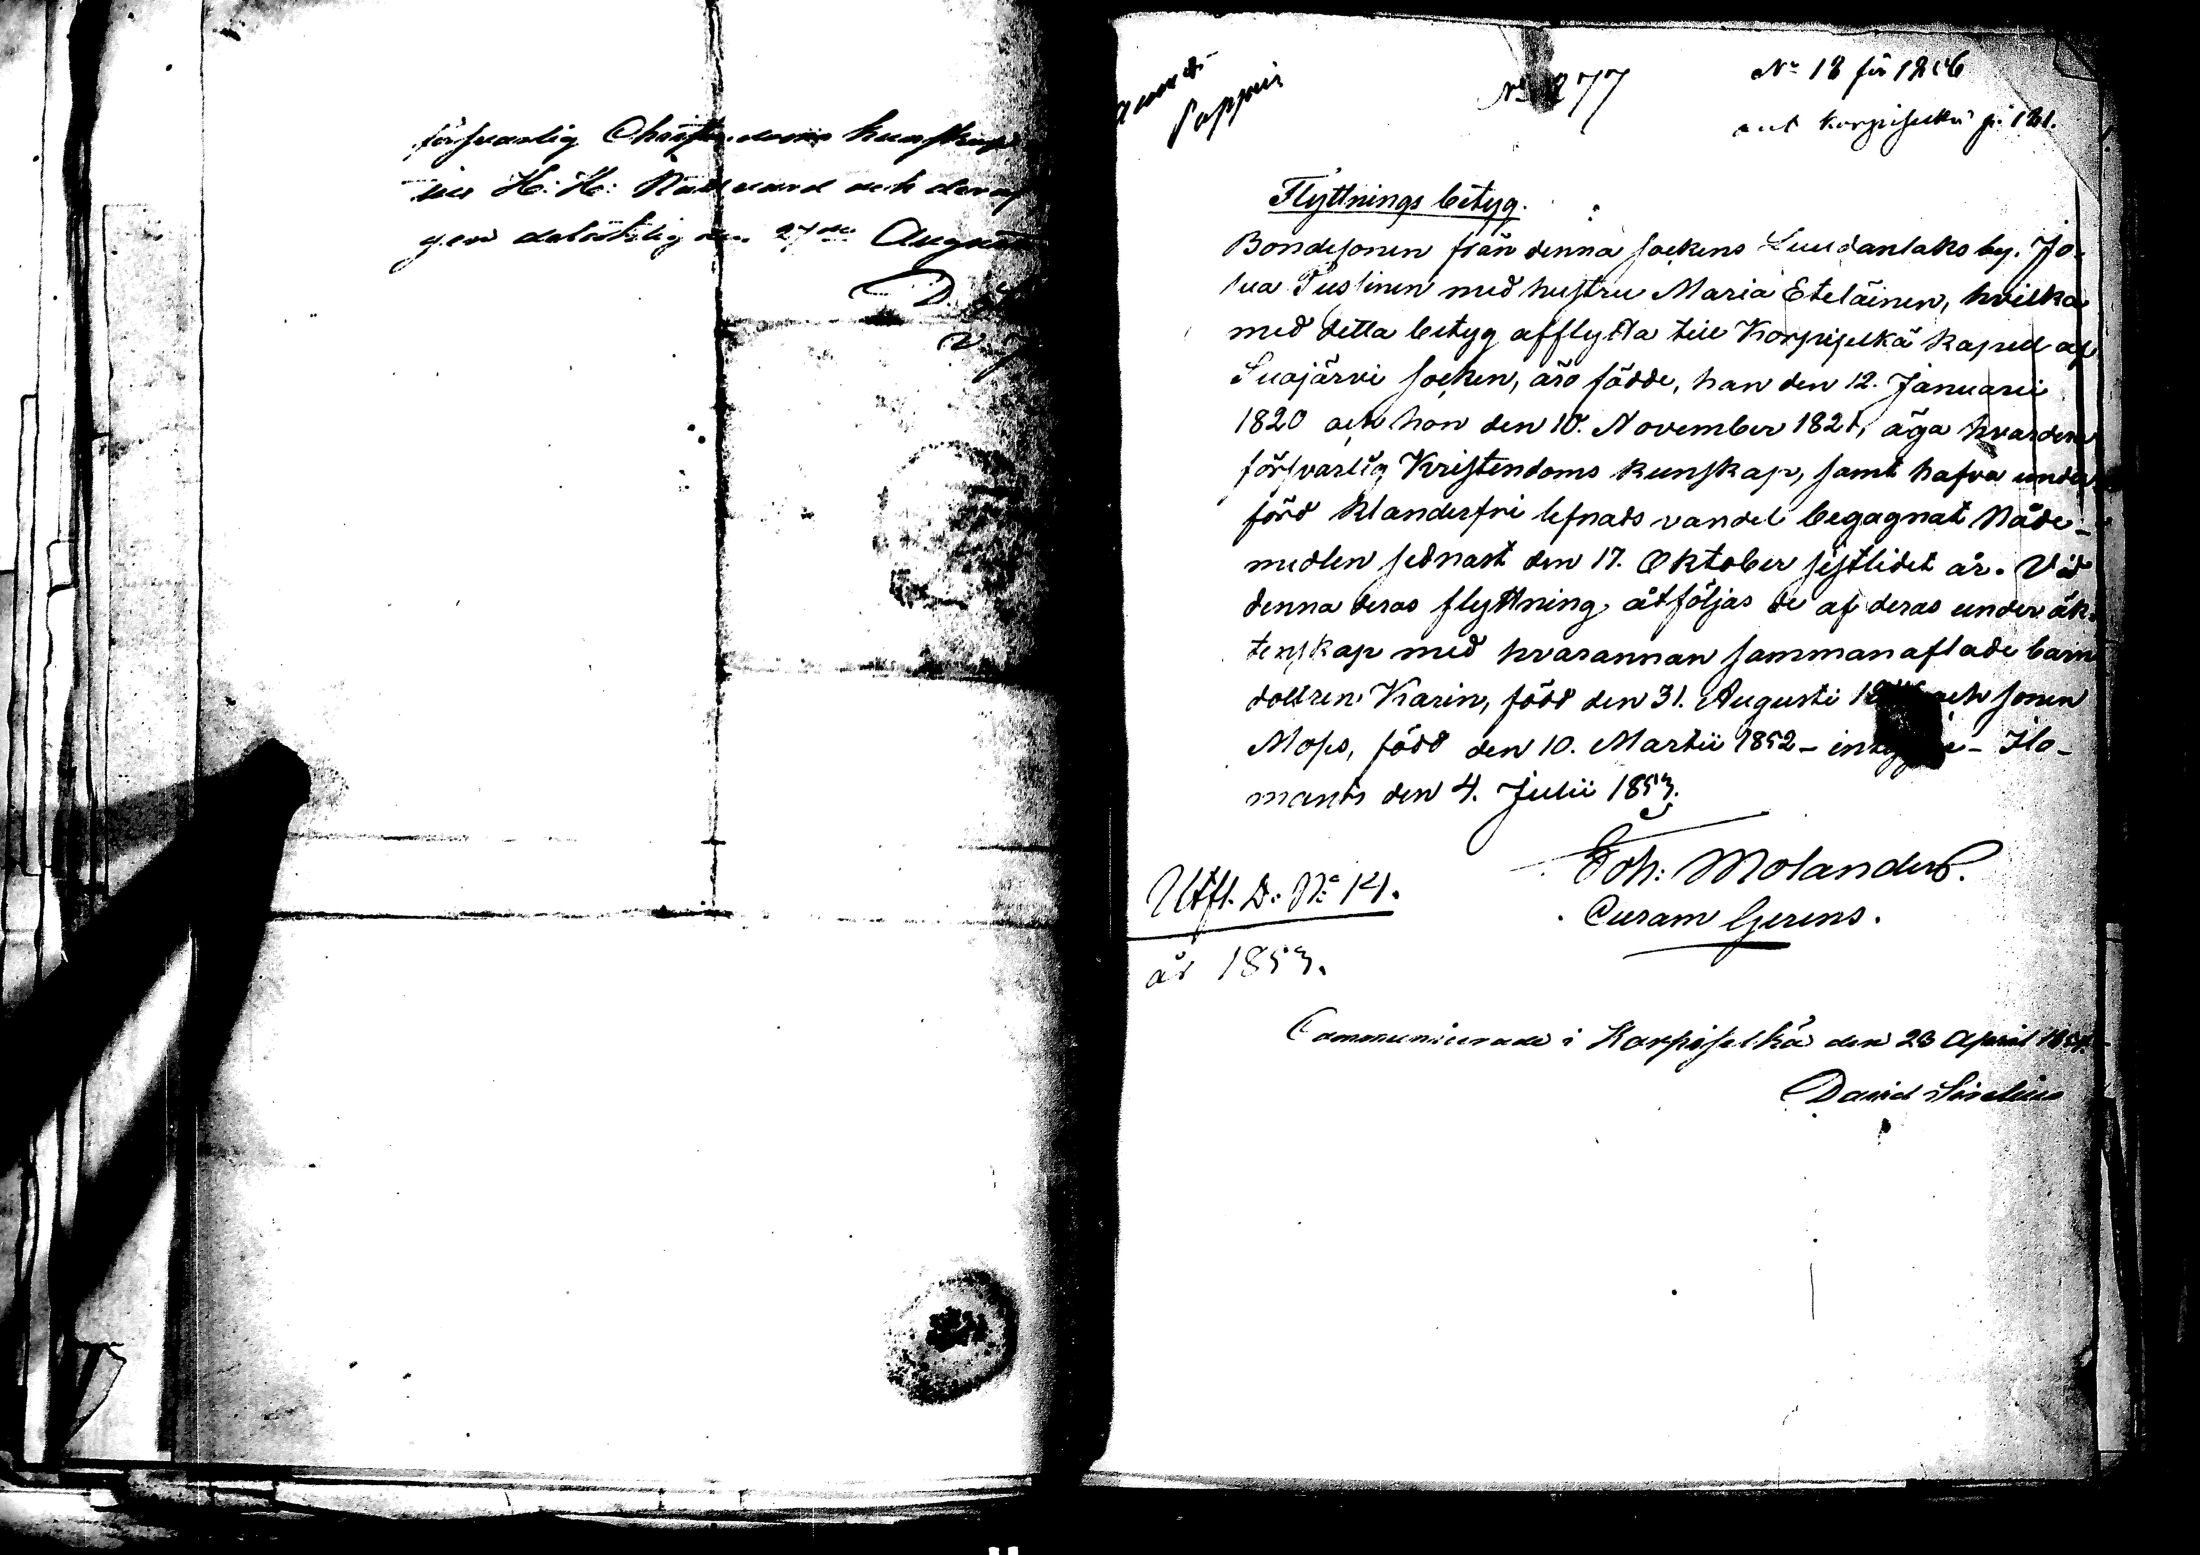 försvarlig Christendoms kunskap
H: H: Nattvard och deraf
den 27de Augusti
D.
V. P
Nº 277
Nº 18 för 1856
ant Korpiselkä p: 181.
Flyttnings betyg.
Bondesonen från denna sockens Luudanlaks by. Jo-
sua Puslinen med hustru Maria Eteläinen, hvilka
med detta betyg afflytta till Korpiselkä kapell af
Suojärvi socken, äro födde, han den 12. Januarii
1820 och hon den 10. November 1821, äga hvardera
försvarlig Kristendoms kunskap, samt hafva under
förd klanderfri lefnads vandel begagnat Nåde-
medlen sednast den 17. Oktober sistlidet år. Vid
denna deras flyttning åtföljas de af deras under äk-
tenskap med hvarannan sammanaflade barn
dottren Karin, född den 31. Augusti och sonen
Mops, född den 10. Martii 1852 - intygar - Ilo-
mants den 4. Julii 1853.
Joh: Molander.
Curam Gerens.
Utfl. D. Nº 141.
år 1853.
Communicerade i Korpiselkä den 23 April 1854.
David